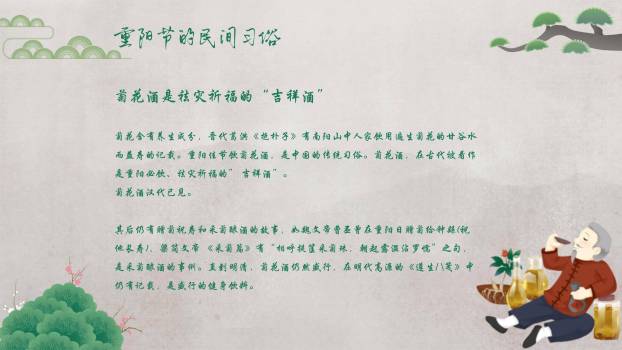 重阳节的民间习俗
菊花酒是祛灾祈福的“吉祥酒”
菊花含有养生成分，晋代葛洪《抱朴子》有南阳山中人家饮用遍生菊花的甘谷水
而益寿的记载。重阳佳节饮菊花酒，是中国的传统习俗。菊花酒，在古代被看作
是重阳必饮、祛灾祈福的”吉祥酒”。
菊花酒汉代已见。
其后仍有赠菊祝寿和采菊酿酒的故事，如魏文帝曹丕曾在重阳日赠菊给钟繇(祝
他长寿)，梁简文帝《采菊篇》有“相呼提筐采菊珠，朝起露湿沾罗襦”之句，
是采菊酿酒的事例。直到明清，菊花酒仍然盛行，在明代高濂的《遵生八笺》中
仍有记载，是盛行的健身饮料。